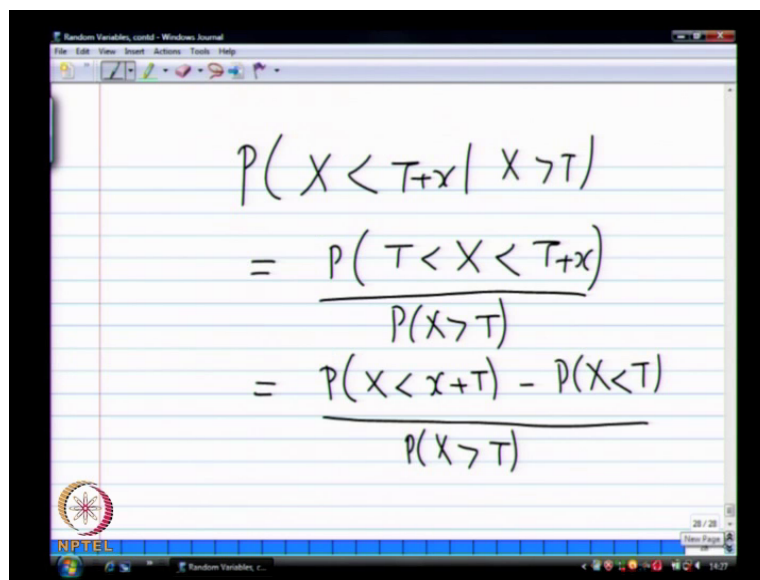 Random Variables, contd - Windows Journal
File Edit View Insert Actions Tools Help
P( X < T+x | X > T)
= P( T < X < T+x)
P(X > T)
= P(X < x+T) - P(X < T)
P(X > T)
28 / 28
New Page
NPTEL
Random Variables, c...
14:27